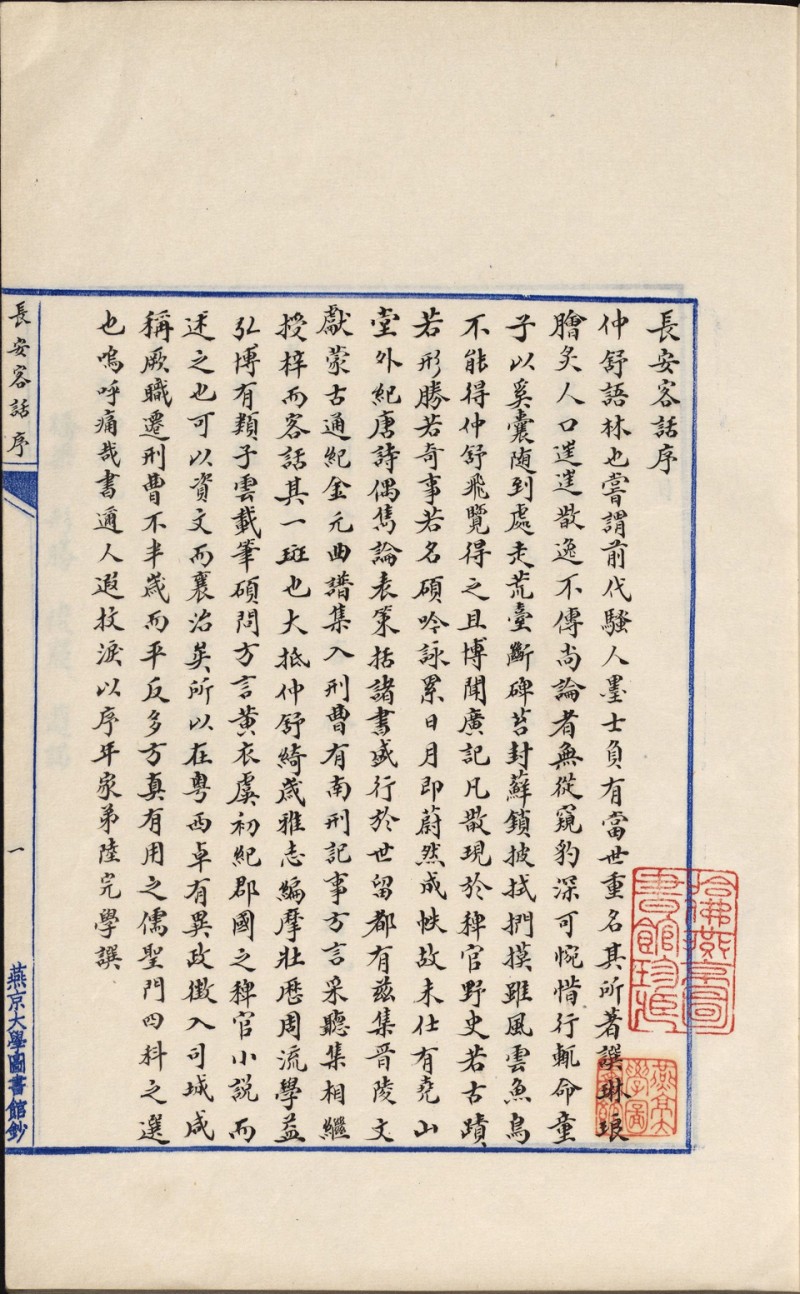 長安客話序
仲舒語林也嘗謂前代騷人墨士負有當世重名其所著譔琳琅
膾炙人口遑遑散逸不傳尚論者無從窺豹深可惋惜行輒命童
子以奚囊随到處走荒臺斷碑苔封蘚鎖披拭捫摸雖風雲魚鳥
不能得仲舒飛覽得之且博聞廣記凡散現於稗官野史若古蹟
若形勝若奇事若名碩吟詠累日月即蔚然成帙故未仕有堯山
堂外紀唐詩偶雋論表策括諸書盛行於世留都有兹集晉陵文
獻蒙古通紀金元曲譜集入刑曹有南刑記事方言采聽集相繼
授梓而客話其一斑也大抵仲舒綺歲雅志編摩壯歷周流學益
弘博有類子雲載筆碩問方言黄衣虞初紀郡國之稗官小説而
述之也可以資文而襄治矣所以在粤西卓有異政徵入司城咸
稱厥職遷刑曹不半歲而平反多方真有用之儒聖門四科之選
也嗚呼痛哉書邇人遐抆淚以序年家弟陸完學譔
長安客話序
一
燕京大學圖書館鈔
哈佛燕京圖書館珍藏
燕京大學圖書館